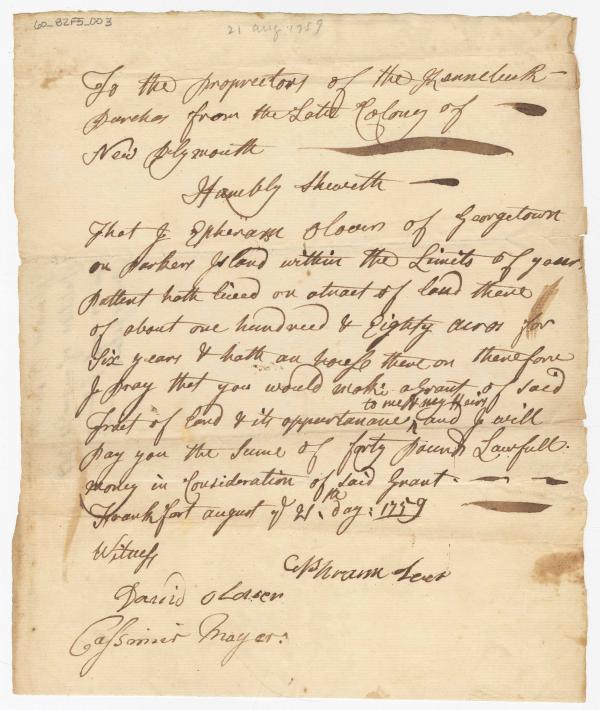 60_82F5_003
21 aug. 1759
To the proprietors of the Kennebeck
Purchas from the Late Colony of
New Plymouth
Humbly sheweth
That I Ephraim Clowes of Georgetown
on Parkers Island within the Limits of your
Pattent hath lived on a tract of land there
of about one hundred & Eighty acres for
Six years & hath an house there on therefore
I pray that you would make a Grant of said
to me & my Heirs
Tract of land & its appurtanance and I will
Pay you the Sume of forty Pounds Lawfull
money in Consideration of said Grant.
Frankfort august ye 21th day: 1759
Witness
Ephraim
David
Cassimir Mayer: